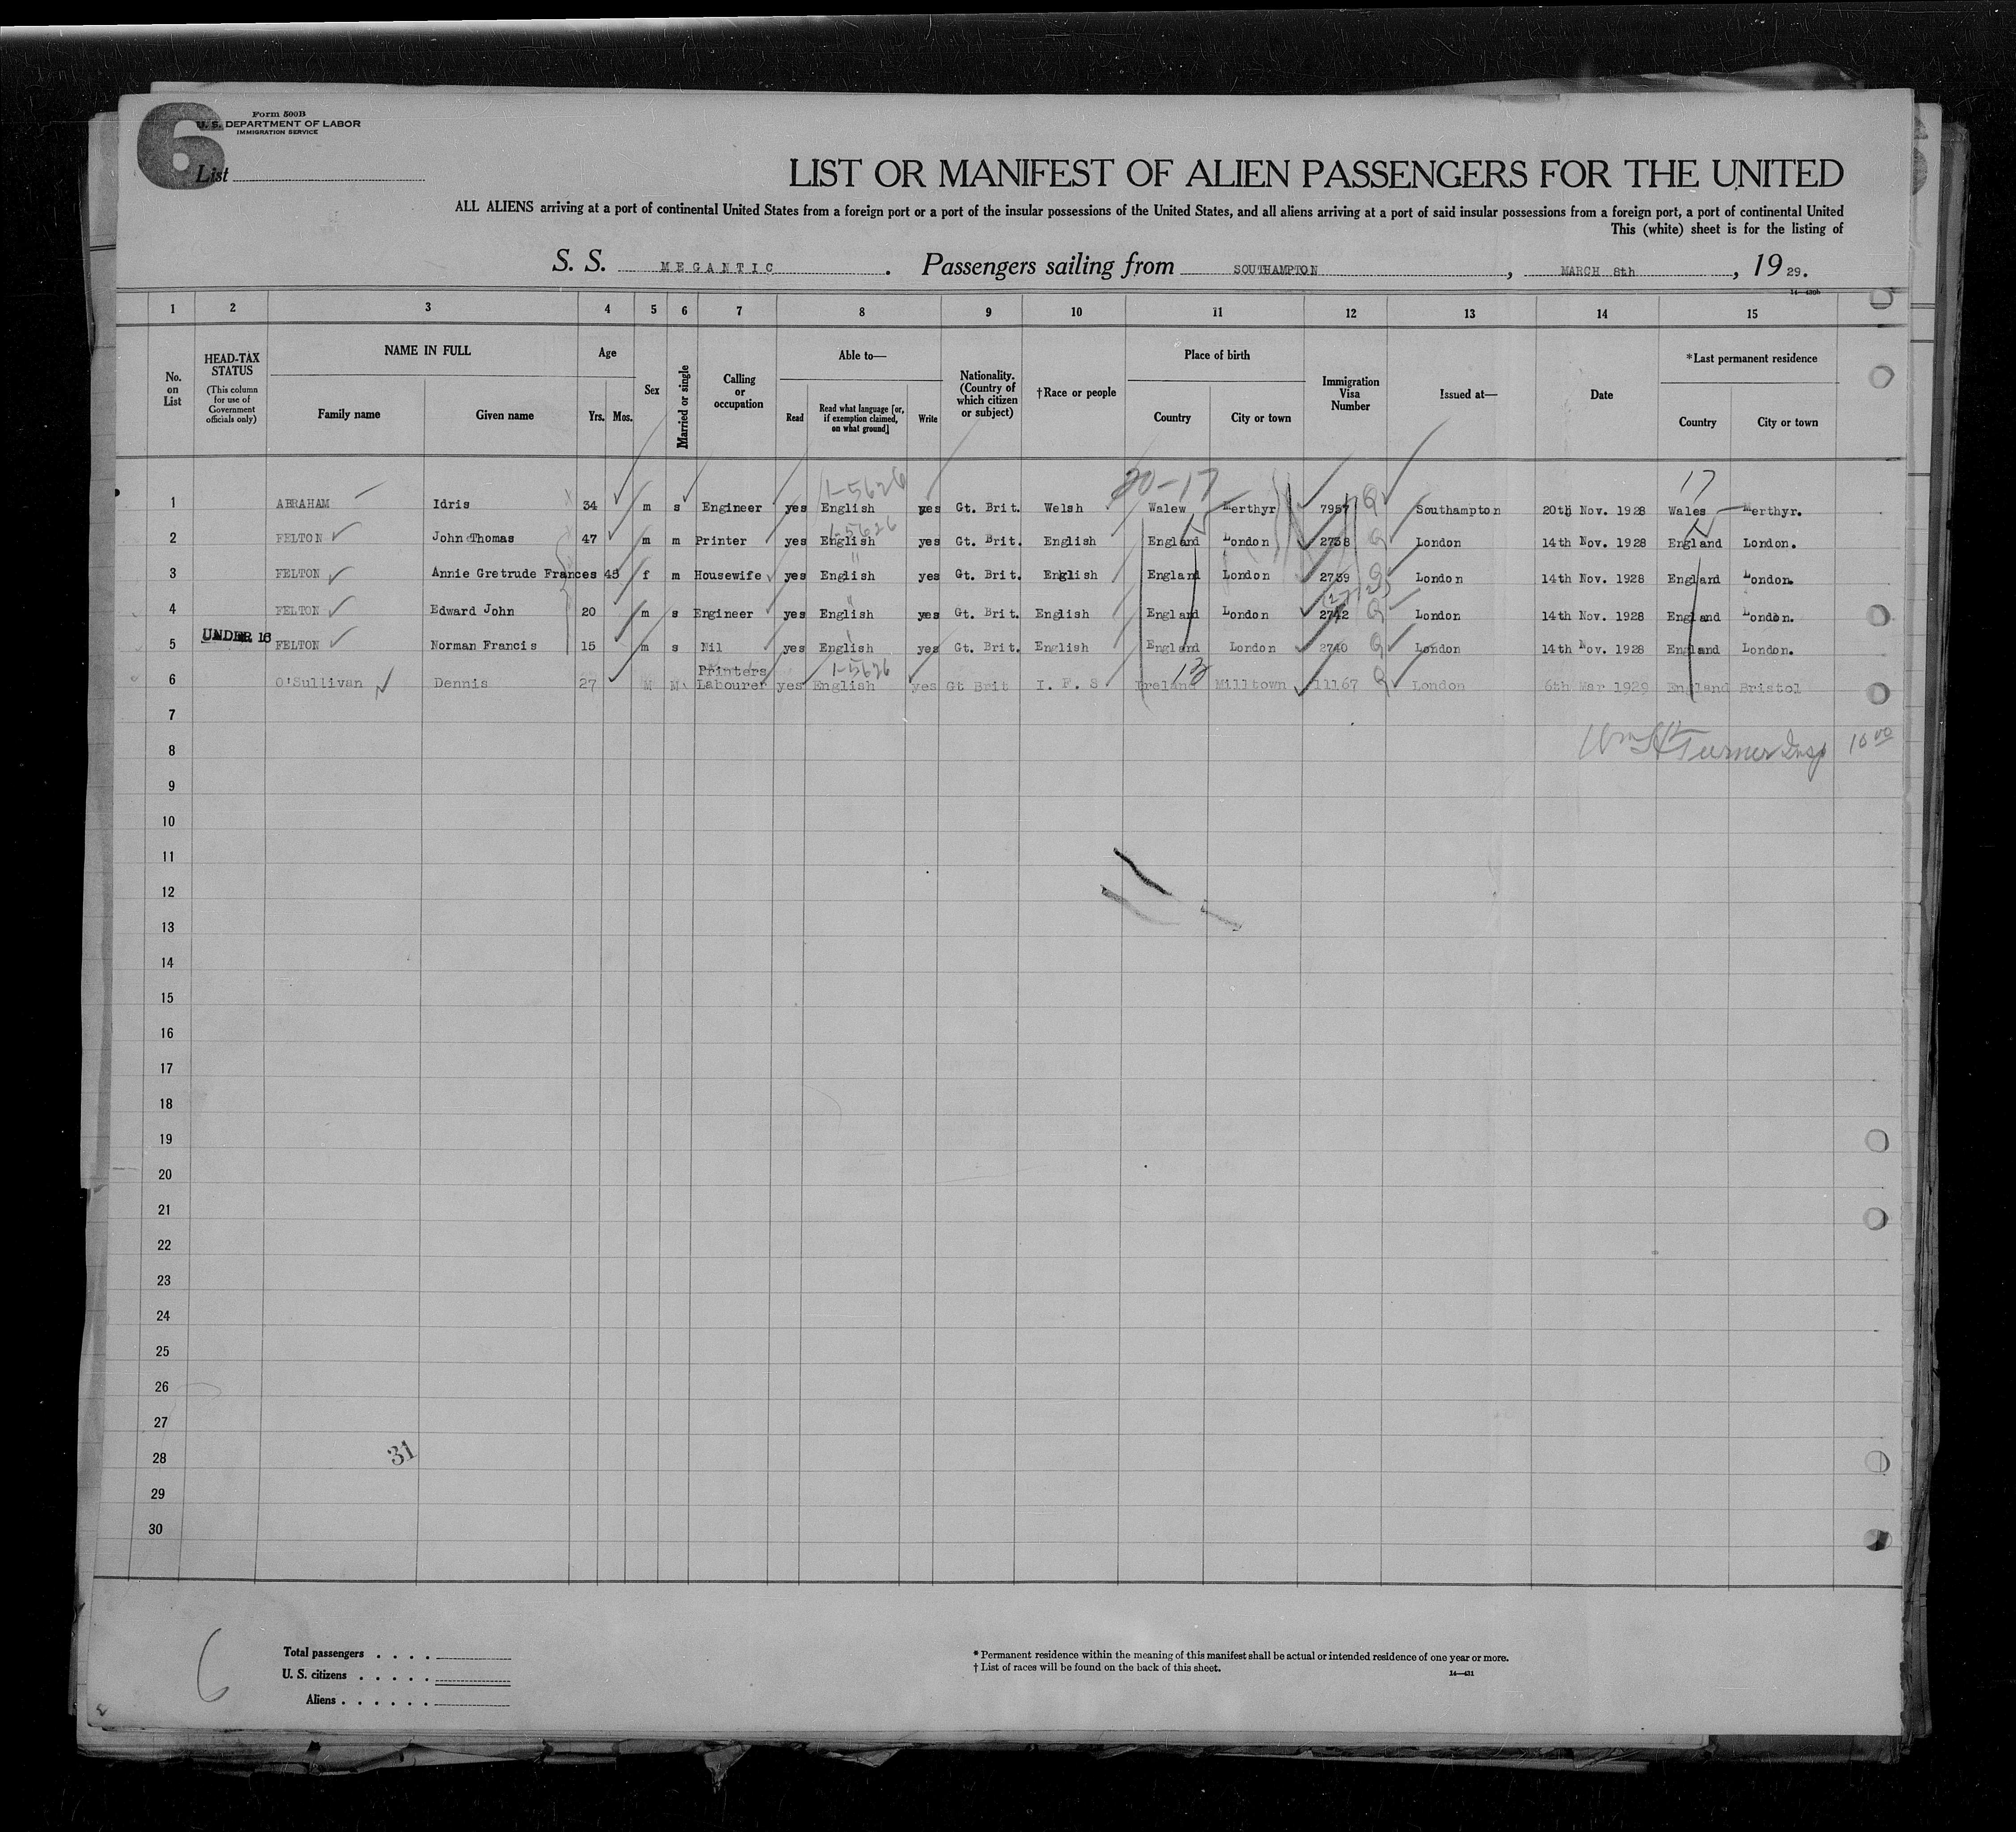 6
Form 500B
U. S. DEPARTMENT OF LABOR
IMMIGRATION SERVICE
List
LIST OR MANIFEST OF ALIEN PASSENGERS FOR THE UNITED
ALL ALIENS arriving at a port of continental United States from a foreign port or a port of the insular possessions of the United States, and all aliens arriving at a port of said insular possessions from a foreign port, a port of continental United
This (white) sheet is for the listing of
S. S. MEGANTIC. Passengers sailing from SOUTHAMPTON, MARCH 8th, 19 29.
14—430b
1 2 3 4 5 6 7 8 9 10 11 12 13 14 15
No. on List
HEAD-TAX STATUS
(This column for use of Government officials only)
NAME IN FULL
Family name Given name
Age
Yrs. Mos.
Sex
Married or single
Calling or occupation
Able to—
Read
Read what language [or, if exemption claimed, on what ground]
Write
Nationality. (Country of which citizen or subject)
†Race or people
Place of birth
Country City or town
Immigration Visa Number
Issued at—
Date
*Last permanent residence
Country City or town
1-5626 20-17 17
1 ABRAHAM Idris 34 m s Engineer yes English yes Gt. Brit. Welsh Walew Merthyr 7957 Q Southampton 20th Nov. 1928 Wales Merthyr.
1-5626
2 FELTON John Thomas 47 m m Printer yes English yes Gt. Brit. English England London 2738 Q London 14th Nov. 1928 England London.
3 FELTON Annie Gretrude Frances 45 f m Housewife yes English yes Gt. Brit. English England London 2739 Q London 14th Nov. 1928 England London.
4 FELTON Edward John 20 m s Engineer yes English yes Gt. Brit. English England London 2742 Q London 14th Nov. 1928 England London.
UNDER 16
5 FELTON Norman Francis 15 m s Nil yes English yes Gt. Brit. English England London 2740 Q London 14th Nov. 1928 England London.
1-5626
6 O'Sullivan Dennis 27 M M Printers Labourer yes English yes Gt Brit I. F. S Ireland Milltown 11167 Q London 6th Mar 1929 England Bristol
7
Wm H Turner Insp 10 00
8
9
10
11
12
13
14
15
16
17
18
19
20
21
22
23
24
25
26
27
31
28
29
30
6
Total passengers . . . .
U. S. citizens . . . . .
Aliens . . . . . .
* Permanent residence within the meaning of this manifest shall be actual or intended residence of one year or more.
† List of races will be found on the back of this sheet.
14—431